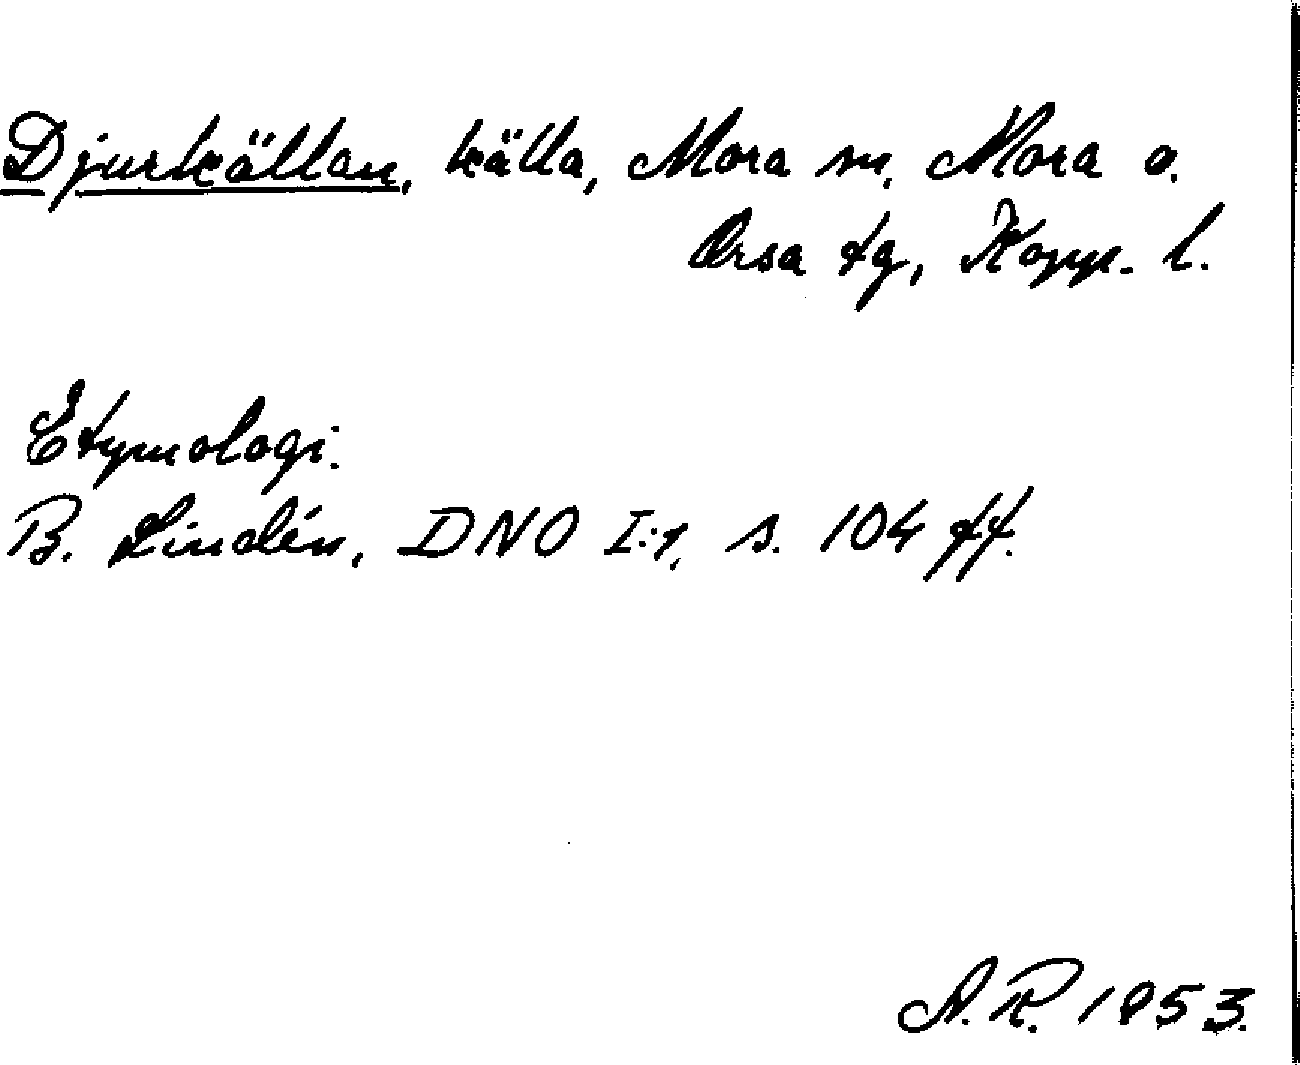 Djurkällan, källa, Mora sn, Mora o.
Orsa tg, Kopp. l.
Etymologi.
B. Lindén, DNO I:1, s. 104 ff.
A.R. 1953.